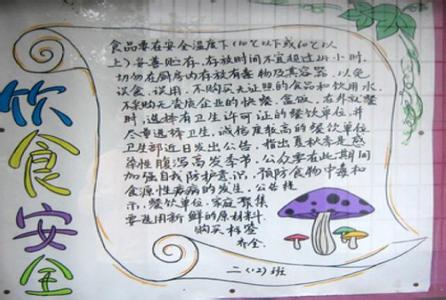 饮食安全
食品要在安全温度下(10℃以下或60℃以
上)妥善贮存,存放时间不宜超过24小时,
切勿在厨房内存放有毒物及其容器,以免
误食、误用。不购买无证照的食品和饮用水,
不采购无资质企业的快餐、盒饭。在外就餐
时,选择有卫生许可证的餐饮单位,并
尽量选择卫生,诚信度较高的餐饮单位
卫生部近日发出公告,指出夏秋季是感
染性腹泻高发季节,公众要在此期间
加强自我防护意识,预防食物中毒和
食源性疾病的发生。公告提
示,餐饮单位,家庭聚集
要选用新鲜的原材料
购买标签
齐全.
二(12)班